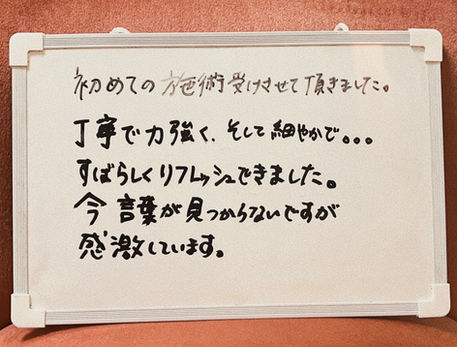 初めての施術受けさせて頂きました。
丁寧で力強く、そして細やかで。。。
すばらしくリフレッシュできました。
今言葉が見つからないですが
感激しています。